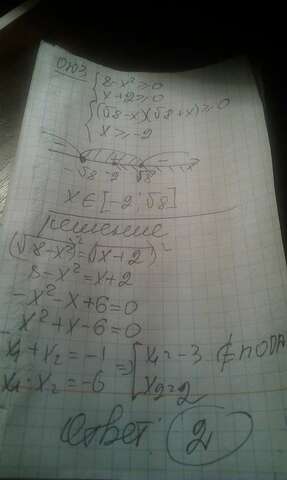 ОДЗ { 8-x²≥0
x+2≥0
(√8-x)(√8+x)≥0
x≥-2
- + -
-√8 -2 √8 x
x∈[-2;√8]
решение
(√8-x²)²=(√x+2)²
8-x²=x+2
-x²-x+6=0
x²+x-6=0
x₁+x₂=-1 ⇒ [ x₁=-3 ∉ по ОДЗ
x₁·x₂=-6 x₂=2
Ответ: 2